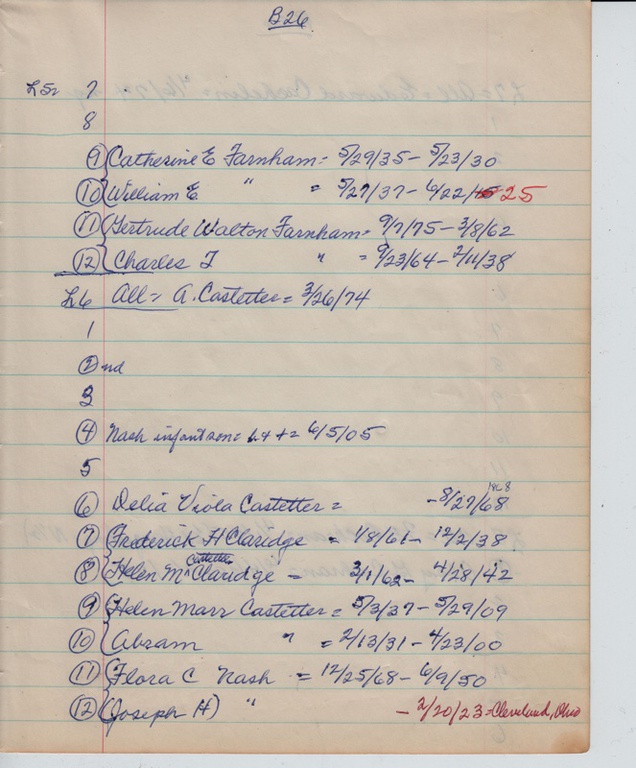 B26
L5= 7
8
⑨ Catherine E Farnham = 5/29/35 - 5/23/30
⑩ William E " = 5/27/37 - 6/22/ 25
⑪ Gertrude Walton Farnham = 9/7/75 - 3/8/62
⑫ Charles T " = 9/23/64 - 2/11/38
L6 All = A. Castetter = 3/26/74
1
② nd
3
④ Nash infant son = = 6/5/05
5
1868
⑥ Delia Viola Castetter = - 8/27/68
⑦ Frederick H Claridge = 1/8/61 - 12/2/38
Castetter
⑧ Helen M Claridge = 3/1/62 - 4/28/42
⑨ Helen Marr Castetter = 5/3/37 - 5/29/09
⑩ Abram " = 2/13/31 - 4/23/00
⑪ Flora C Nash = 12/25/68 - 6/9/50
⑫ (Joseph H) " - 2/20/23 = Cleveland, Ohio